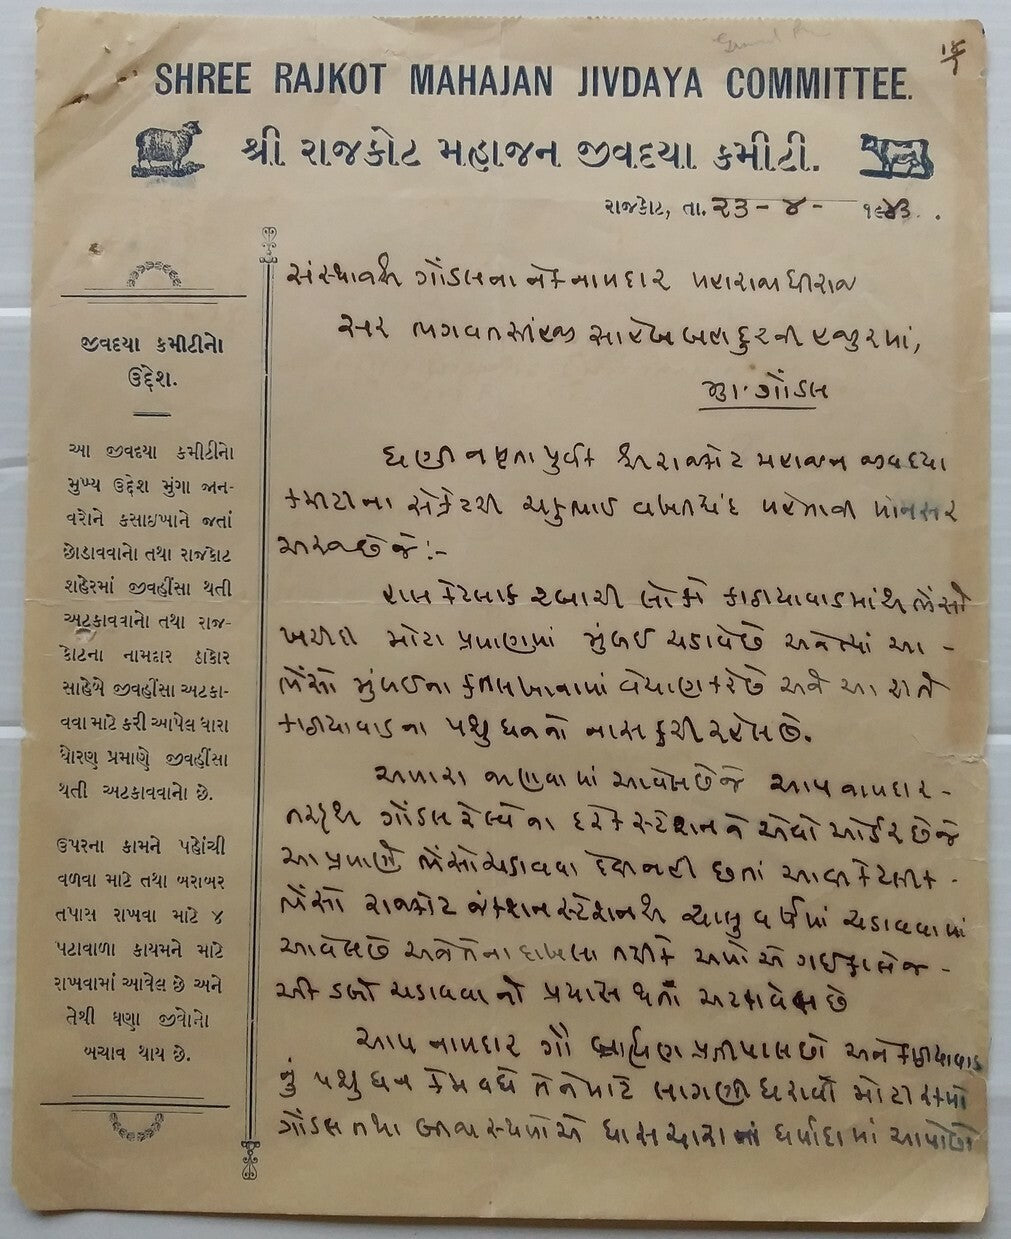 SHREE RAJKOT MAHAJAN JIVDAYA COMMITTEE.
શ્રી રાજકોટ મહાજન જીવદયા કમીટી.
રાજકોટ, તા. ૨૩-૪- ૧૯૪૩.
જીવદયા કમીટીનો
ઉદ્દેશ.
આ જીવદયા કમીટીનો
મુખ્ય ઉદ્દેશ મુંગા જાન-
વરોને કસાઇખાને જતાં
છોડાવવાનો તથા રાજકોટ
શહેરમાં જીવહીંસા થતી
અટકાવવાનો તથા રાજ-
કોટના નામદાર ઠાકોર
સાહેબે જીવહીંસા અટકા-
વવા માટે કરી આપેલ ધારા
ધોરણ પ્રમાણે જીવહીંસા
થતી અટકાવવાનો છે.
ઉપરના કામને પહોંચી
વળવા માટે તથા બરાબર
તપાસ રાખવા માટે ૪
પટાવાળા કાયમને માટે
રાખવામાં આવેલ છે અને
તેથી ઘણા જીવોનો
બચાવ થાય છે.
સંસ્થાનશ્રી ગોંડલના નેક નામદાર મહારાજાધીરાજ
સર ભગવતસીંહજી સાહેબ બહાદુરની હજુરમાં,
મુ. ગોંડલ
ઘણી નમ્રતા પુર્વક શ્રી રાજકોટ મહાજન જીવદયા
કમીટીના સેક્રેટરી વખતચંદ મહેતાની
અરજ છે જે :-
હાલ કેટલાક રબારી લોકો કાઠીયાવાડમાંથી ભેંસો
ખરીદી મોટા પ્રમાણમાં મુંબઇ ચડાવે છે અને ત્યાં આ -
ભેંસો મુંબઇના કતલખાનામાં વેચાણ કરે છે અને આ રીતે
કાઠીયાવાડના પશુધનનો નાસ કરી રહેલ છે.
અમારા જાણવામાં આવેલ છે જે આપ નામદાર -
તરફથી ગોંડલ રેલ્વેના દરેક સ્ટેશનને એવો ઓર્ડર છે જે
આ પ્રમાણે ભેંસો ચડાવવા દેવી નહી છતાં આવી કેટલીક -
ભેંસો રાજકોટ જંકશન સ્ટેશનથી ચાલુ વર્ષમાં ચડાવવામાં
આવેલ છે અને તેના દાખલા તરીકે અમો એ ગઈ કાલેજ -
ડબો ચડાવવાનો પ્રયાસ થતાં અટકાવેલ છે
આપ નામદાર ગૌ બ્રાહ્મણ પ્રતીપાલ છો અને કાઠીયાવાડ
નું પશુધન કેમ વધે તેને માટે લાગણી ધરાવી મોટી રકમો
ગોંડલ તથા બીજા સ્થળોએ ઘાસચારાનાં ધર્માદામાં આપો છો